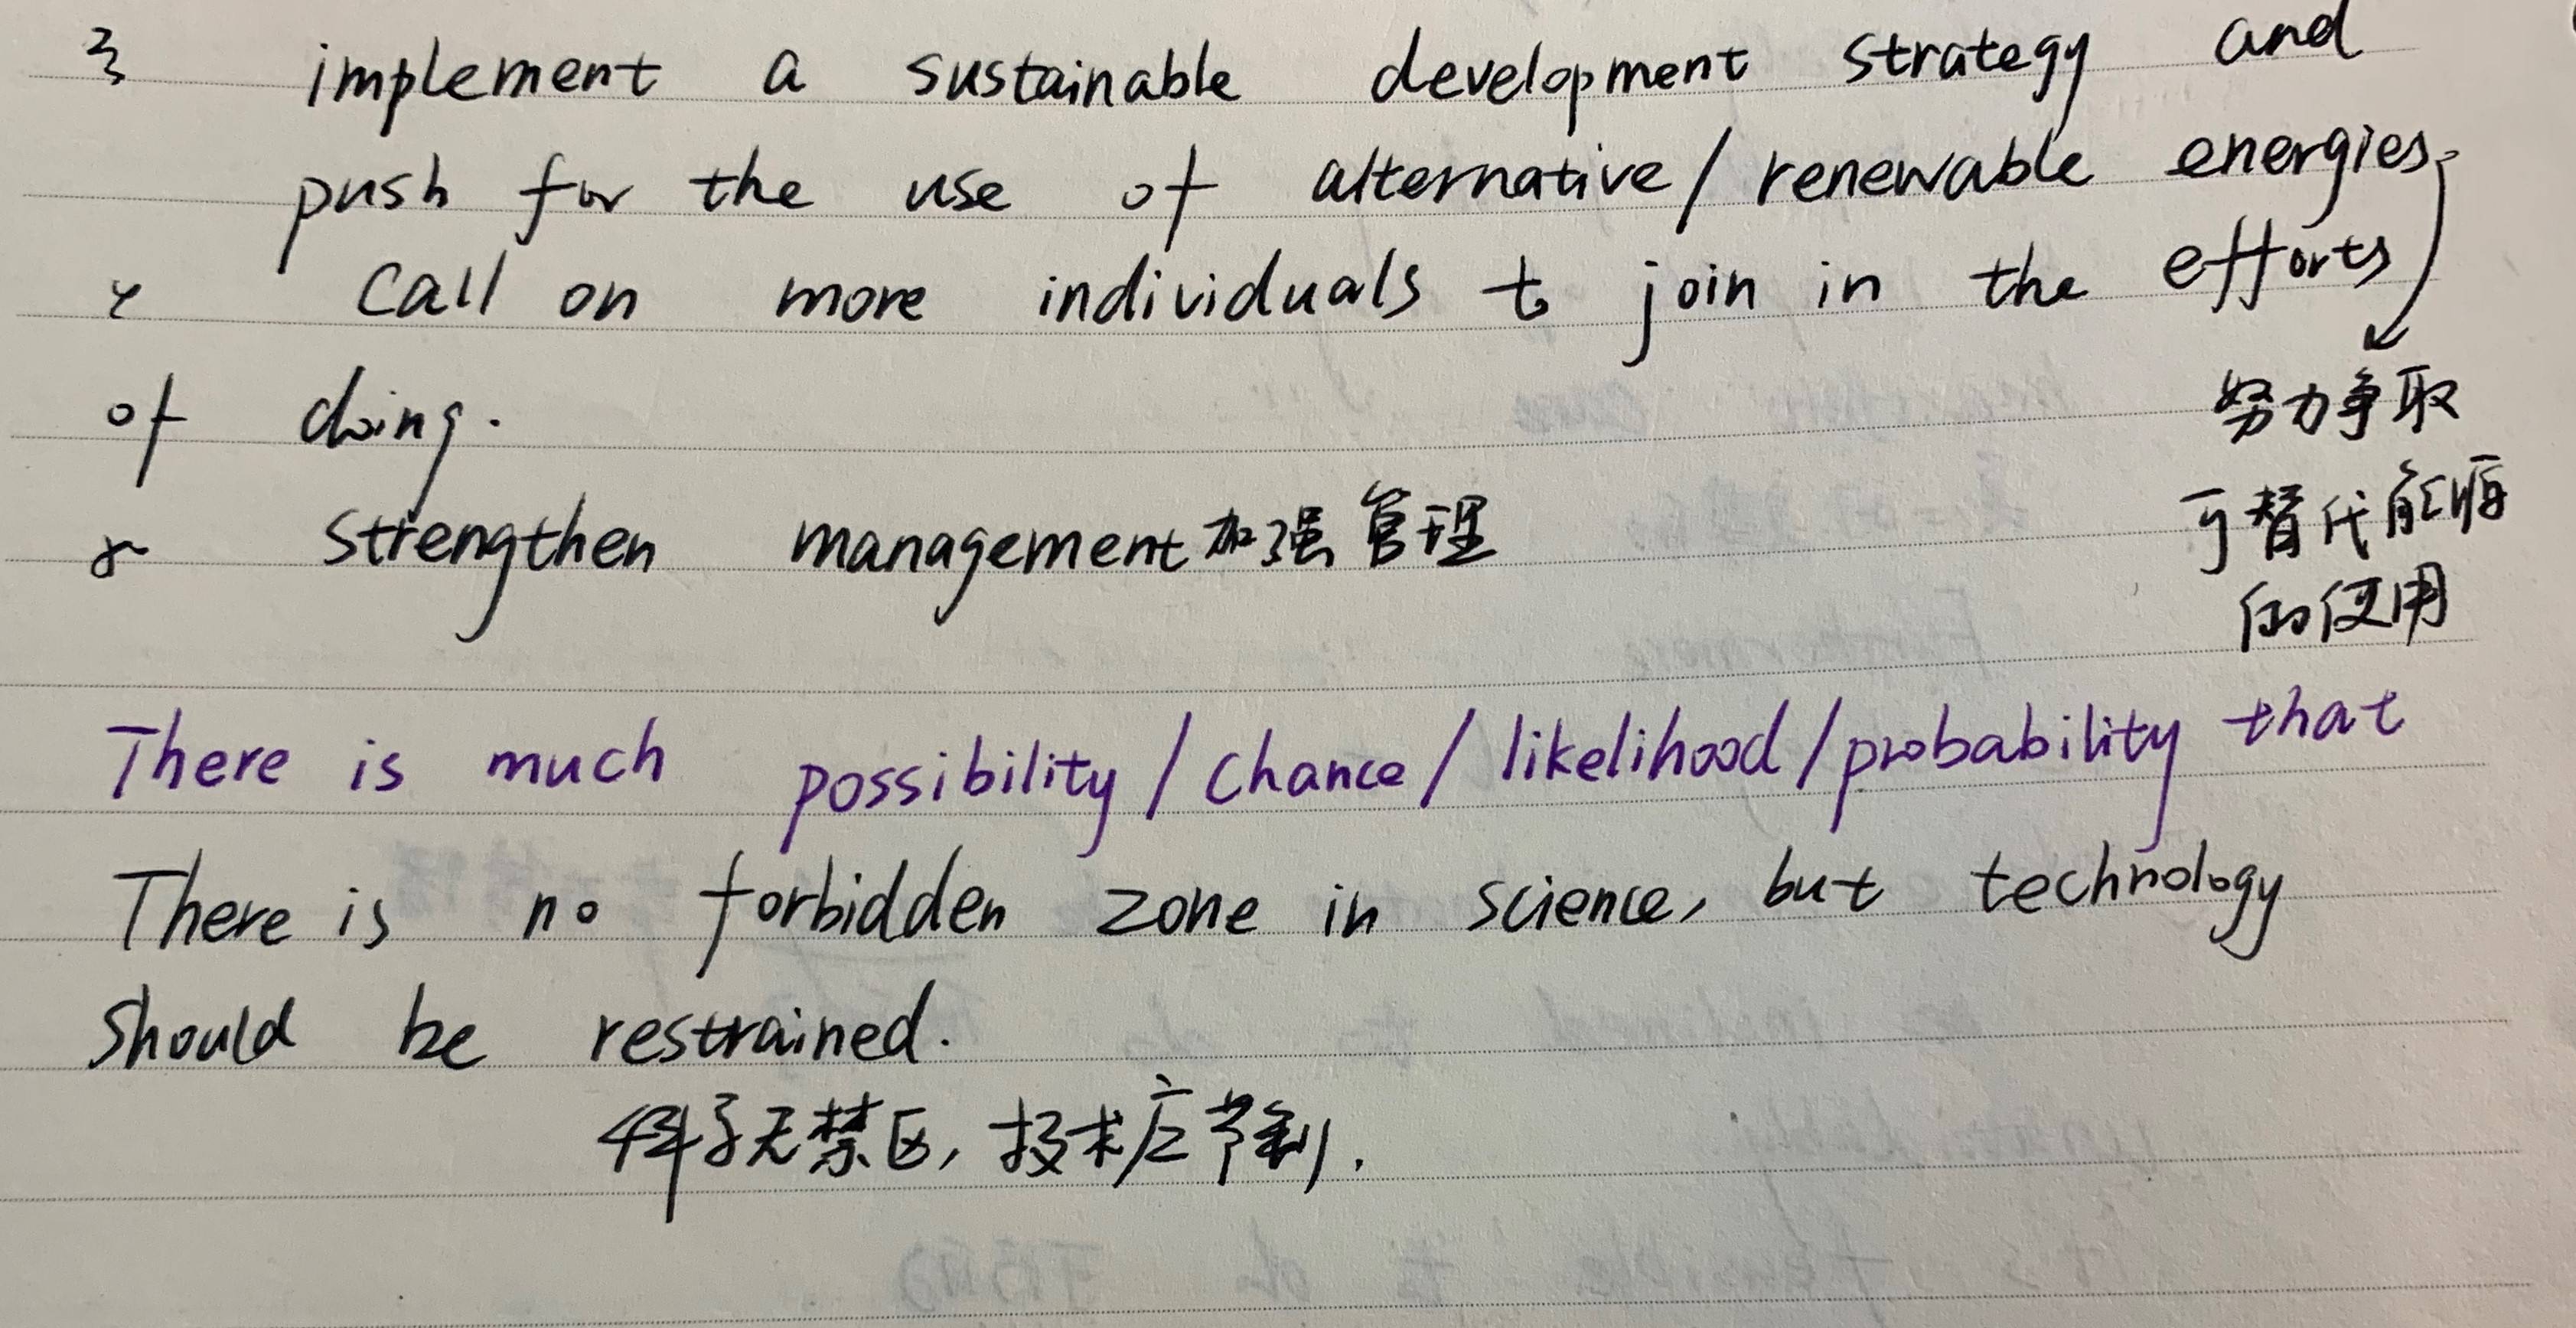 3 implement a sustainable development strategy and
push for the use of alternative/renewable energies.
call on more individuals to join in the efforts
努力争取
of doing.
可替代能源
strengthen management加强管理
的使用
There is much possibility/chance/likelihood/probability that
There is no forbidden zone in science, but technology
should be restrained.
科学无禁区, 技术应节制.